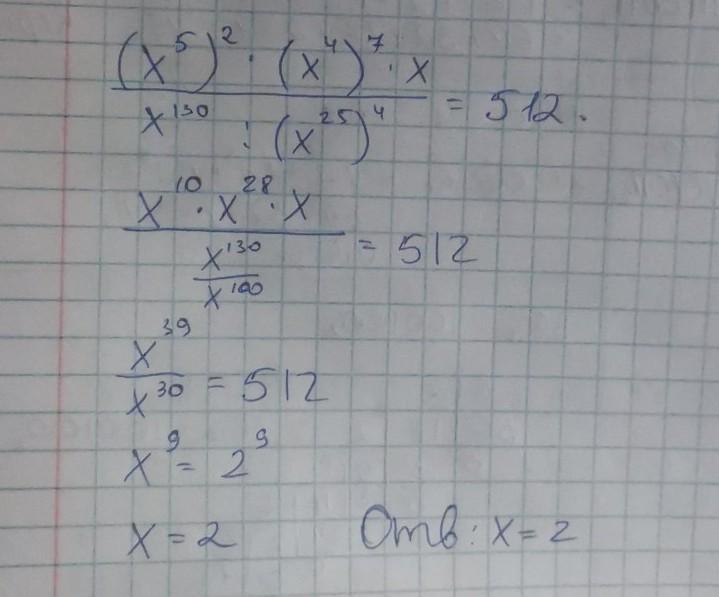 (x⁵)² · (x⁴)⁷ · x / x¹³⁰ : (x²⁵)⁴ = 512.
x¹⁰ · x²⁸ · x / x¹³⁰ / x¹⁰⁰ = 512
x³⁹ / x³⁰ = 512
x⁹ = 2⁹
x = 2 Отв: x = 2